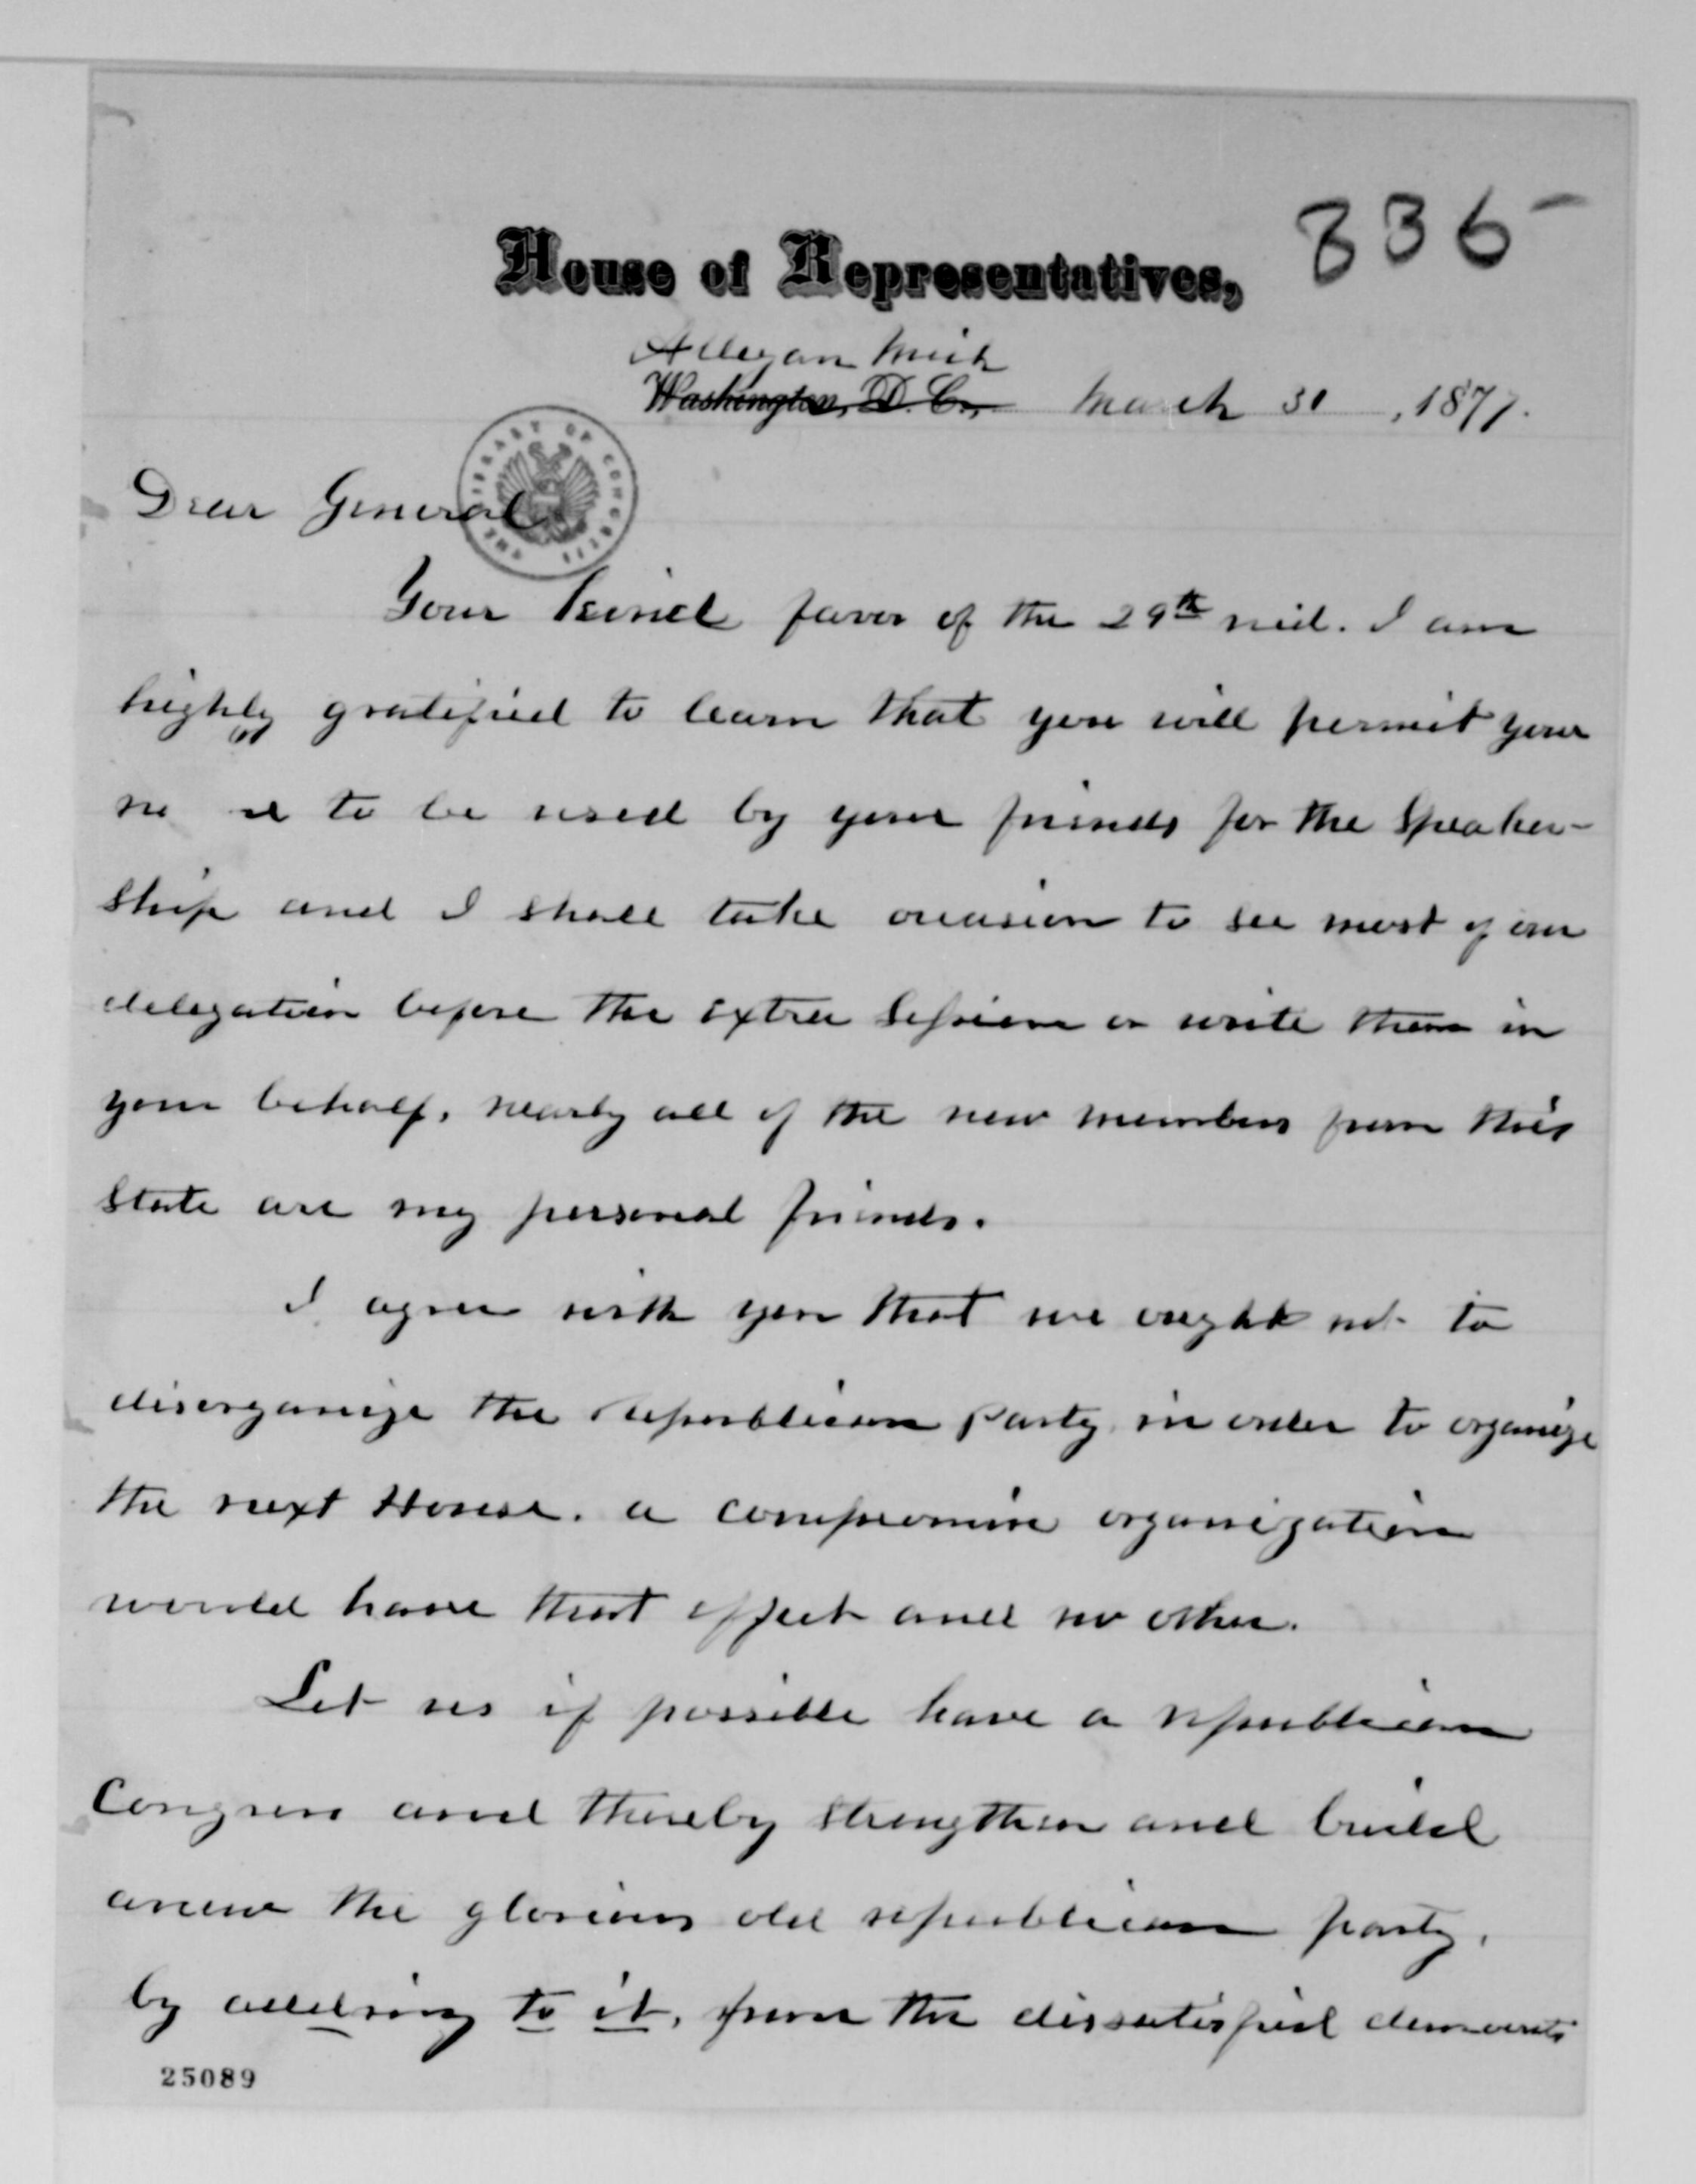 336-
House of Representatives,
Allegan Mich
Washington, D.C., March 30, 1877.
THE LIBRARY OF CONGRESS
Dear General
Your kind favor of the 29th recd. I am
highly gratified to learn that you will permit your
to be used by your friends for the Speaker-
ship and I shall take occasion to see most of our
delegation before the extra Session or write them in
your behalf, nearly all of the new members from this
State are my personal friends.
I agree with you that we ought not to
disorganize the Republican Party in order to organize
the next House. a compromise organization
would have that effect and no other.
Let us if possible have a republican
Congress and thereby strengthen and build
anew the glorious old republican party,
by adding to it, from the dissatisfied democrats
25089